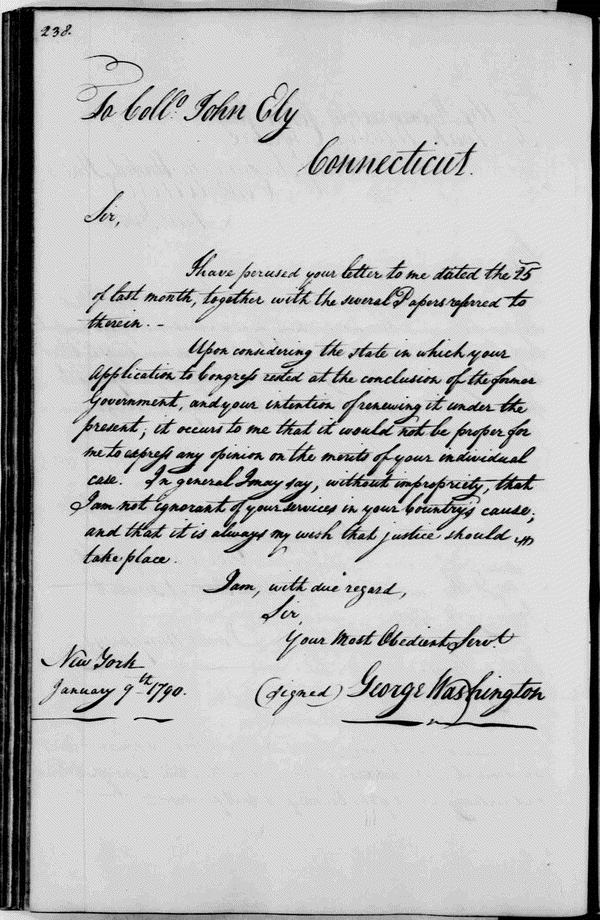 238.
To Coll.o John Ely
Connecticut.
Sir,
I have perused your letter to me dated the 25
of last month, together with the several Papers referred to
therein. -
Upon considering the state in which your
application to Congress rested at the conclusion of the former
Government, and your intention of renewing it under the
present, it occurs to me that it would not be proper for
me to express any opinion on the merits of your individual
case. In general I may say, without impropriety, that
I am not ignorant of your services in your Country's cause;
and that it is always my wish that justice should
take place.
I am, with due regard,
Sir,
Your Most Obedient Serv.t
New York
January 9th 1790.
(signed) George Washington